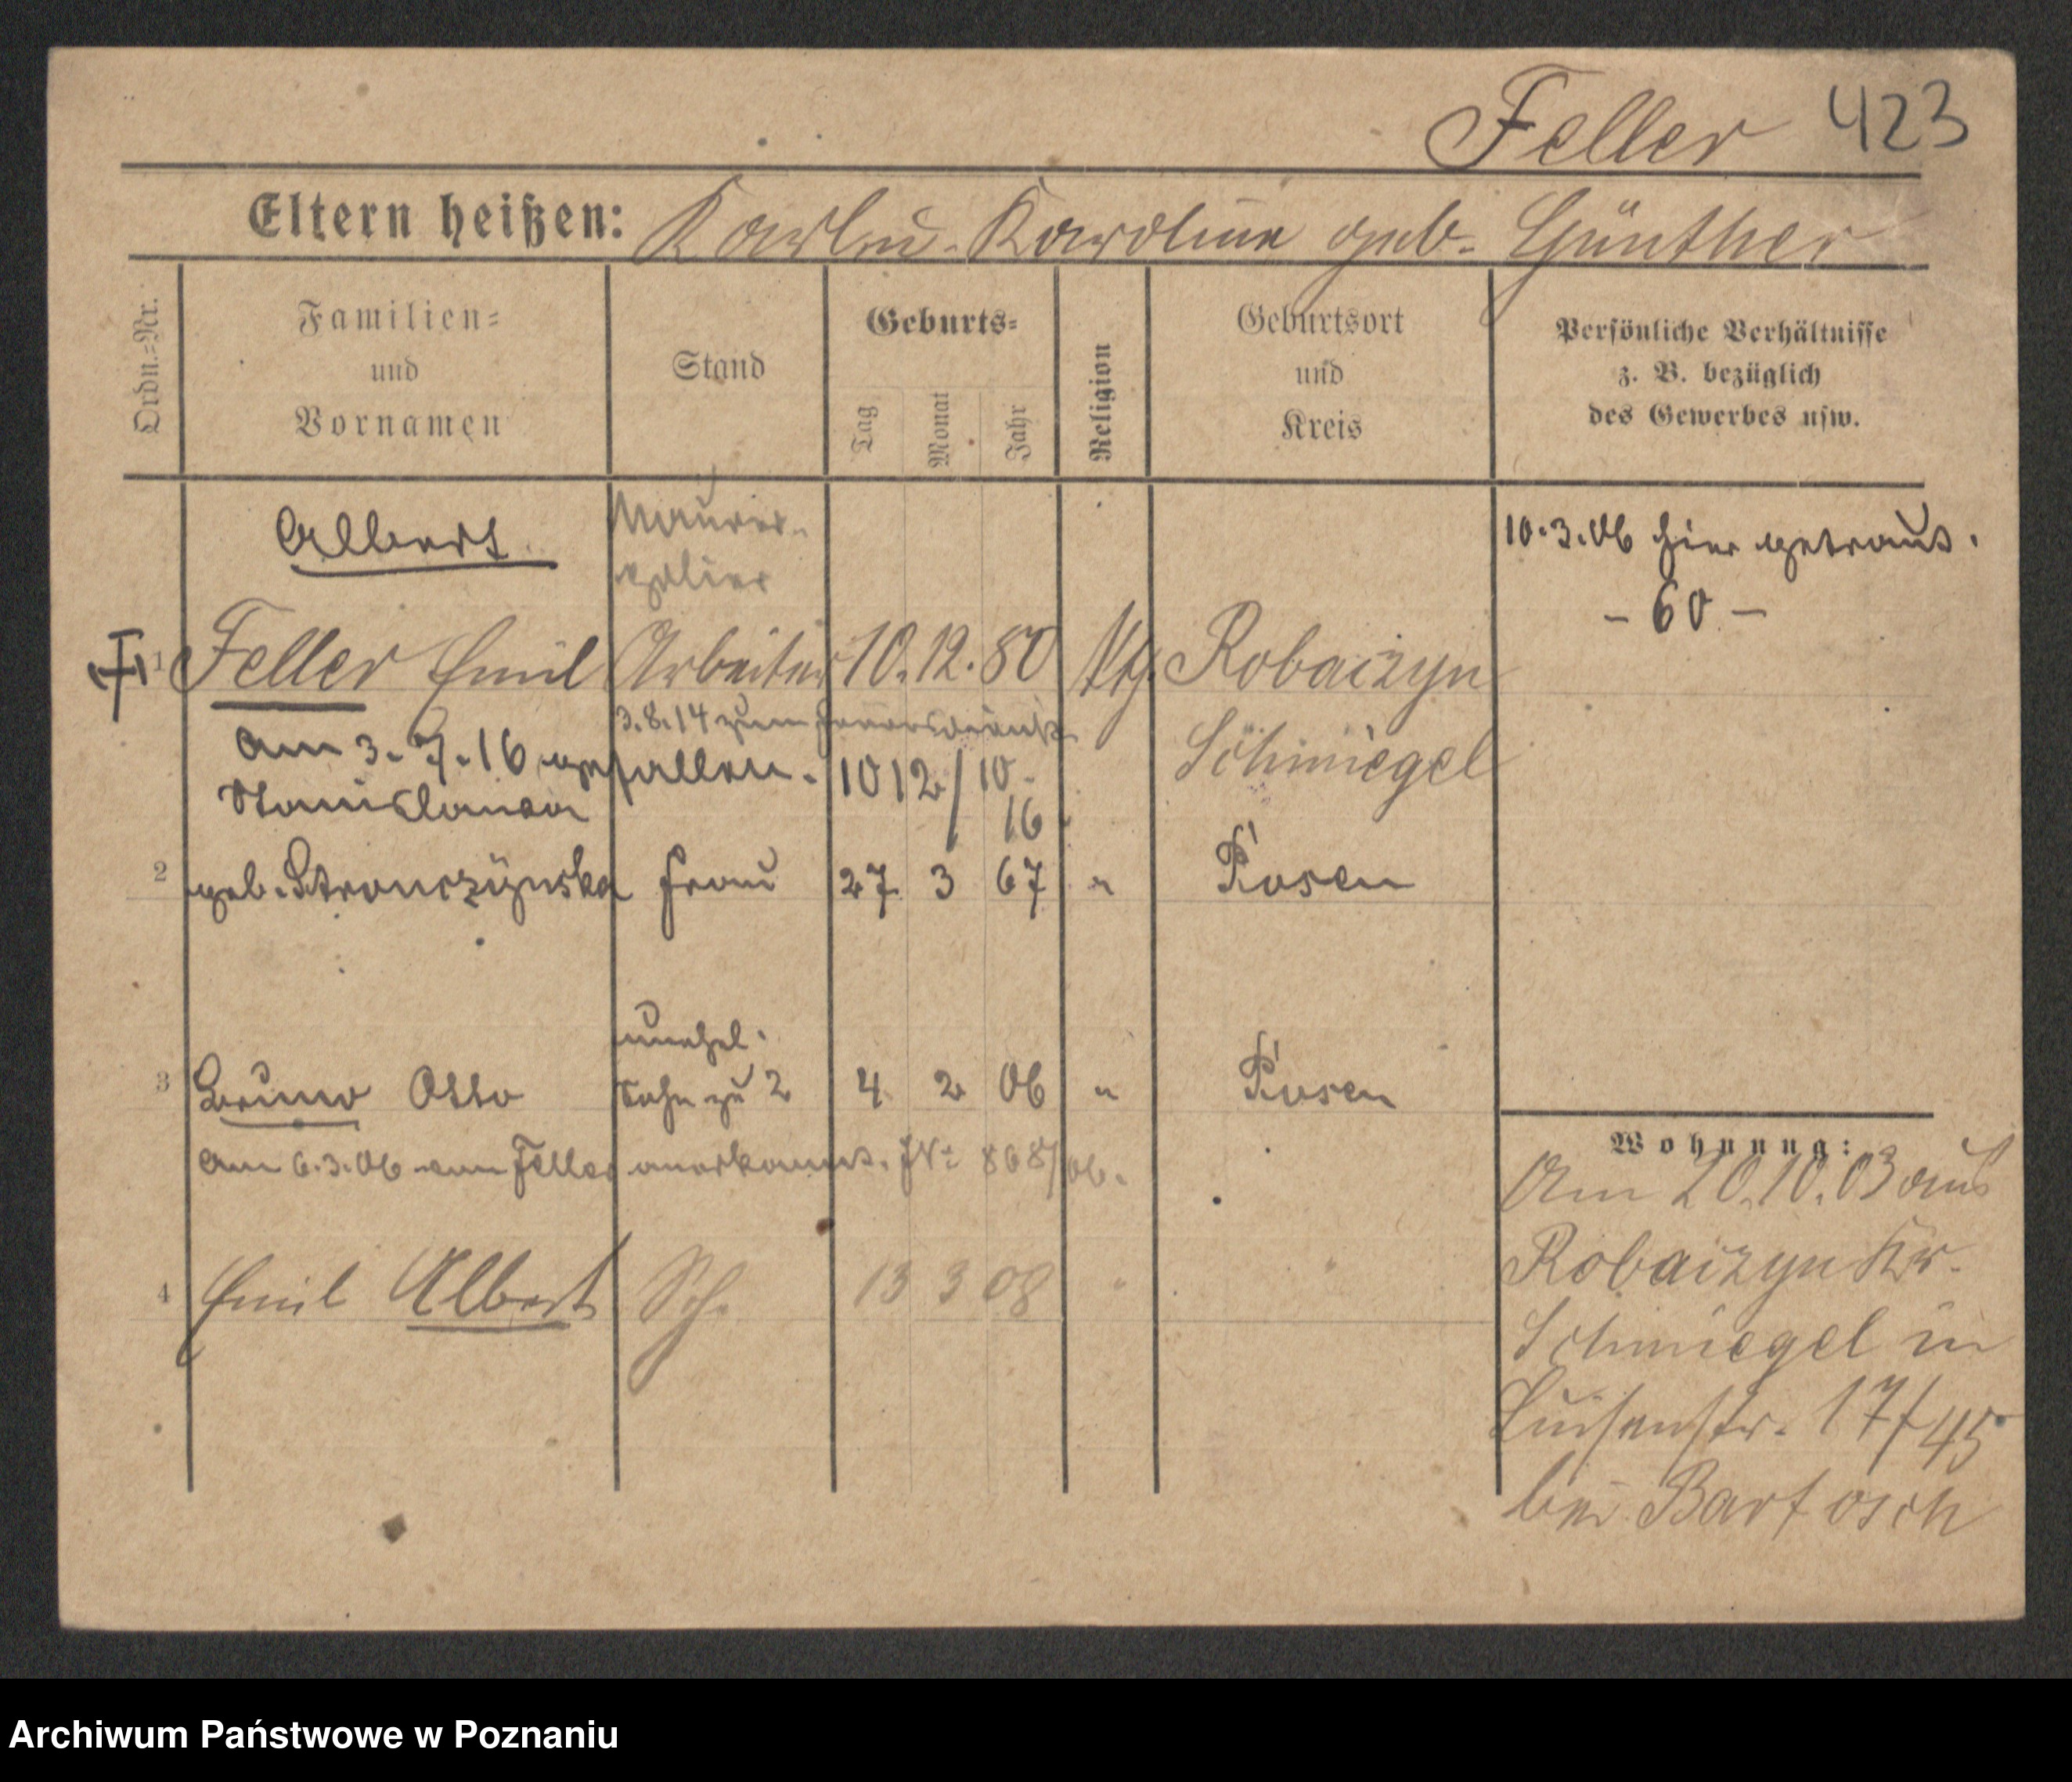 Feller 423
Eltern heißen: Karl u. Karoline geb. Günther
Ordn.-Nr.
Familien- und Vornamen
Stand
Geburts-
Tag Monat Jahr
Religion
Geburtsort und Kreis
Persönliche Verhältnisse z. B. bezüglich des Gewerbes usw.
Albert
Maurer-
polier
10.3.06 hier getraut.
- 60 -
1 Feller Emil Arbeiter 10. 12. 80 Robaczyn
3.8.14 zum Heeresdienst
Schmiegel
am 3.7.16 gefallen. 1012/10.
16
Stanislawa
2 geb. Stronczynska Frau 27 3 67 " Posen
unehel.
3 Bruno Otto Sohn zu 2 4 2 06 " Posen
am 6.3.06 von Feller anerkannt. 868/06.
4 Emil Albert 13 3 08 " "
Wohnung:
Am 20.10.03 aus
Robaczyn Kr.
Schmiegel in
Luisenstr. 17/45
bei Bartosch
Archiwum Państwowe w Poznaniu